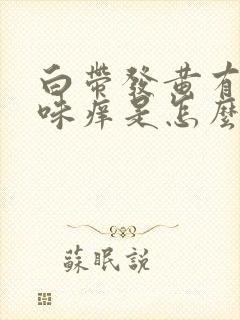 白帶發黃有
味癢是怎麼
蘇眠說